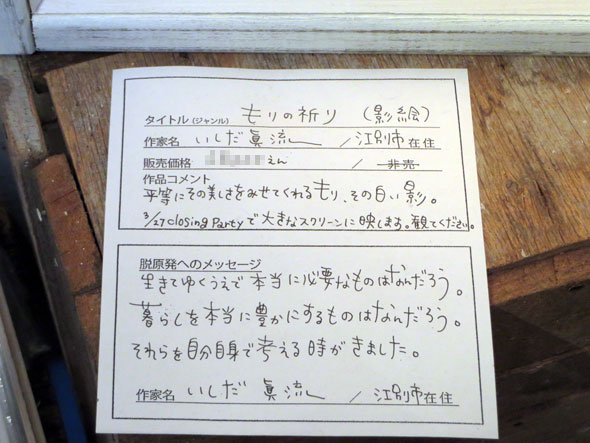 タイトル（ジャンル） もりの祈り （影絵）
作家名 いしだ眞流〜 / 江別市在住
販売価格 えん / 非売
作品コメント
平等にその美しさをみせてくれるもり、その白い影。
3/27 closing Partyで大きなスクリーンに映します。観てください。
脱原発へのメッセージ
生きてゆくうえで本当に必要なものはなんだろう。
暮らしを本当に豊かにするものはなんだろう。
それらを自分自身で考える時がきました。
作家名 いしだ 眞流〜 / 江別市在住